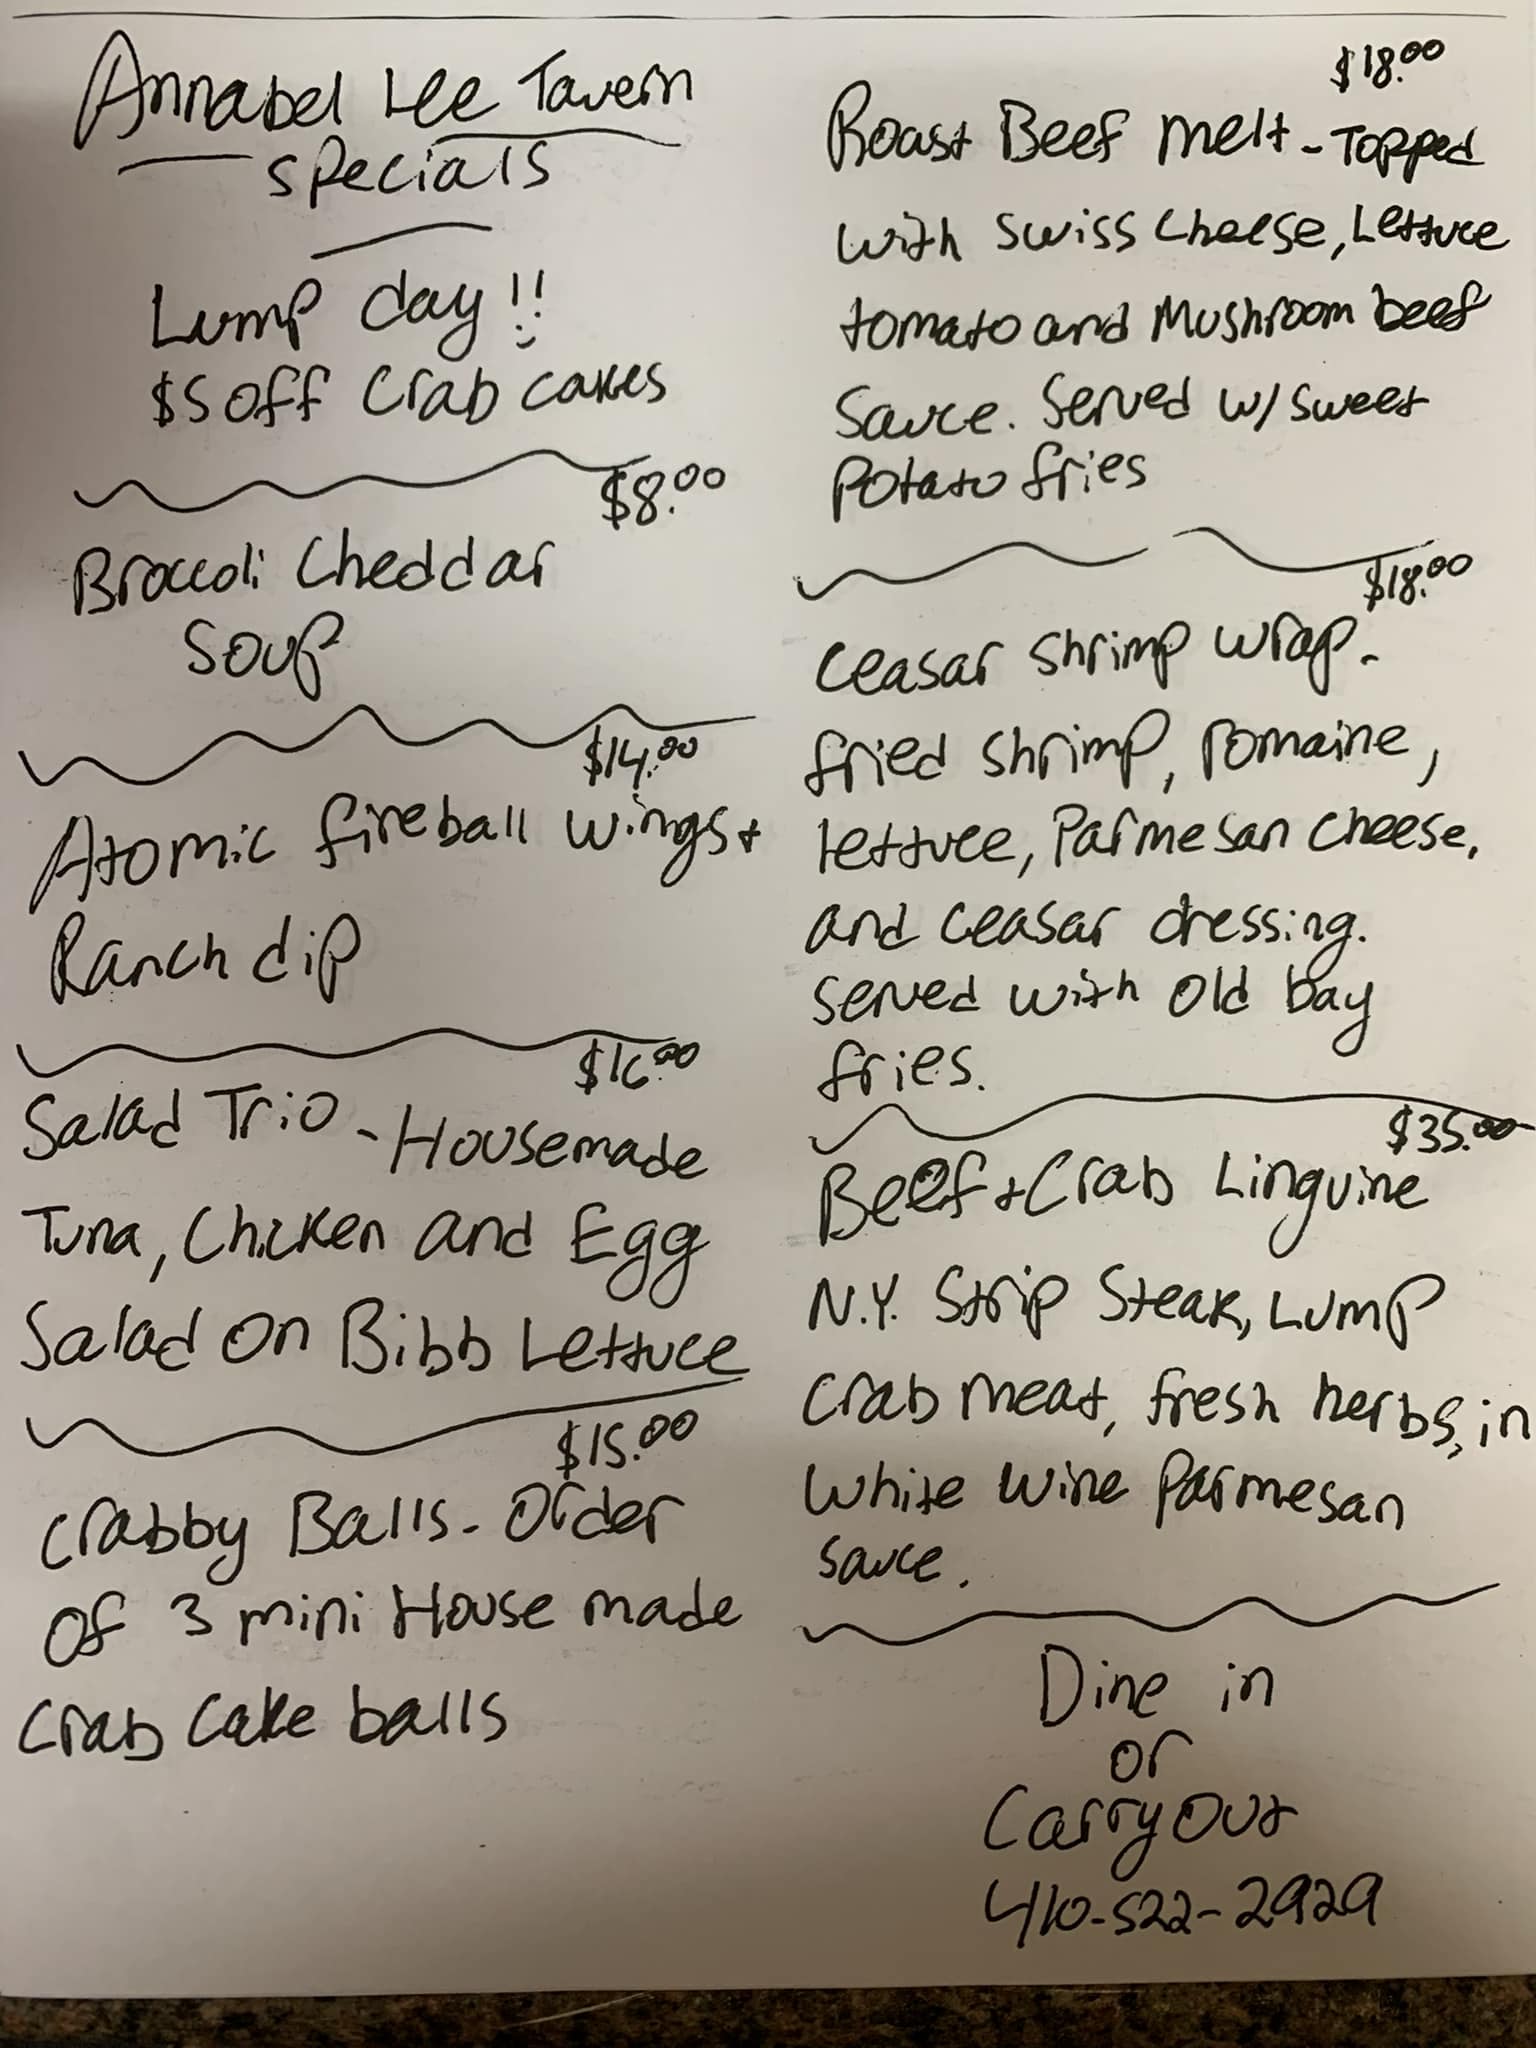 Annabel Lee Tavern
Specials
Lump day!!
$5 off Crab cakes
$8.00
Broccoli Cheddar
Soup
$14.00
Atomic fireball wings +
Ranch dip
$16.00
Salad Trio - Housemade
Tuna, Chicken and Egg
Salad on Bibb Lettuce
$15.00
Crabby Balls - Order
of 3 mini House made
Crab Cake balls
$18.00
Roast Beef melt - Topped
with Swiss Cheese, Lettuce
tomato and Mushroom beef
Sauce. Served w/ sweet
potato fries
$18.00
Ceasar shrimp wrap -
fried shrimp, romaine,
lettuce, Parmesan cheese,
and ceasar dressing.
served with old bay
fries.
$35.00
Beef + Crab Linguine
N.Y. Strip Steak, Lump
crab meat, fresh herbs, in
white wine Parmesan
sauce.
Dine in
or
Carryout
410-522-2929